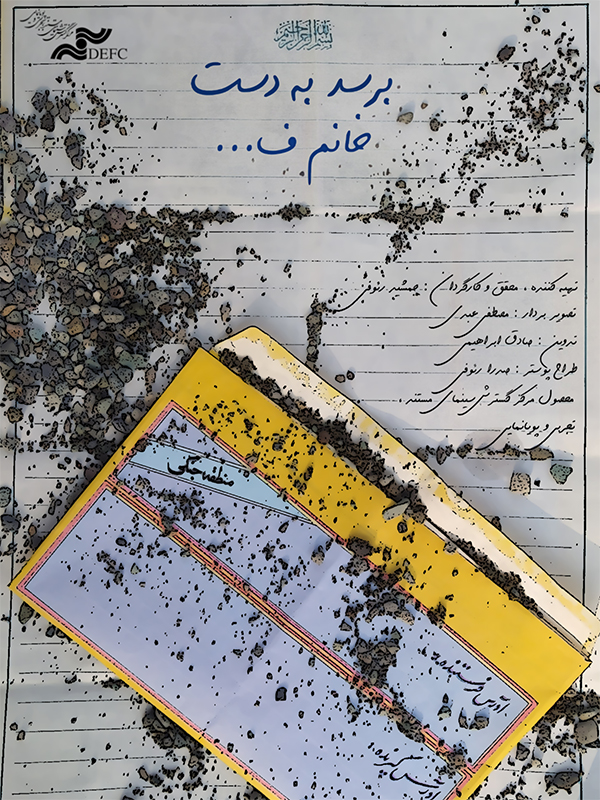 DEFC
بسم الله الرحمن الرحیم
برسد به دست
خانم ف...
تهیه کننده ، محقق و کارگردان : جمشید رئوفی
تصویر بردار : مصطفی عبدی
تدوین : صادق ابراهیمی
طراح پوستر : صدرا رئوفی
محصول مرکز گسترش سینمای مستند ،
تجربی و پویانمایی
منطقه جنگی
آدرس فرستنده :
آدرس گیرنده :